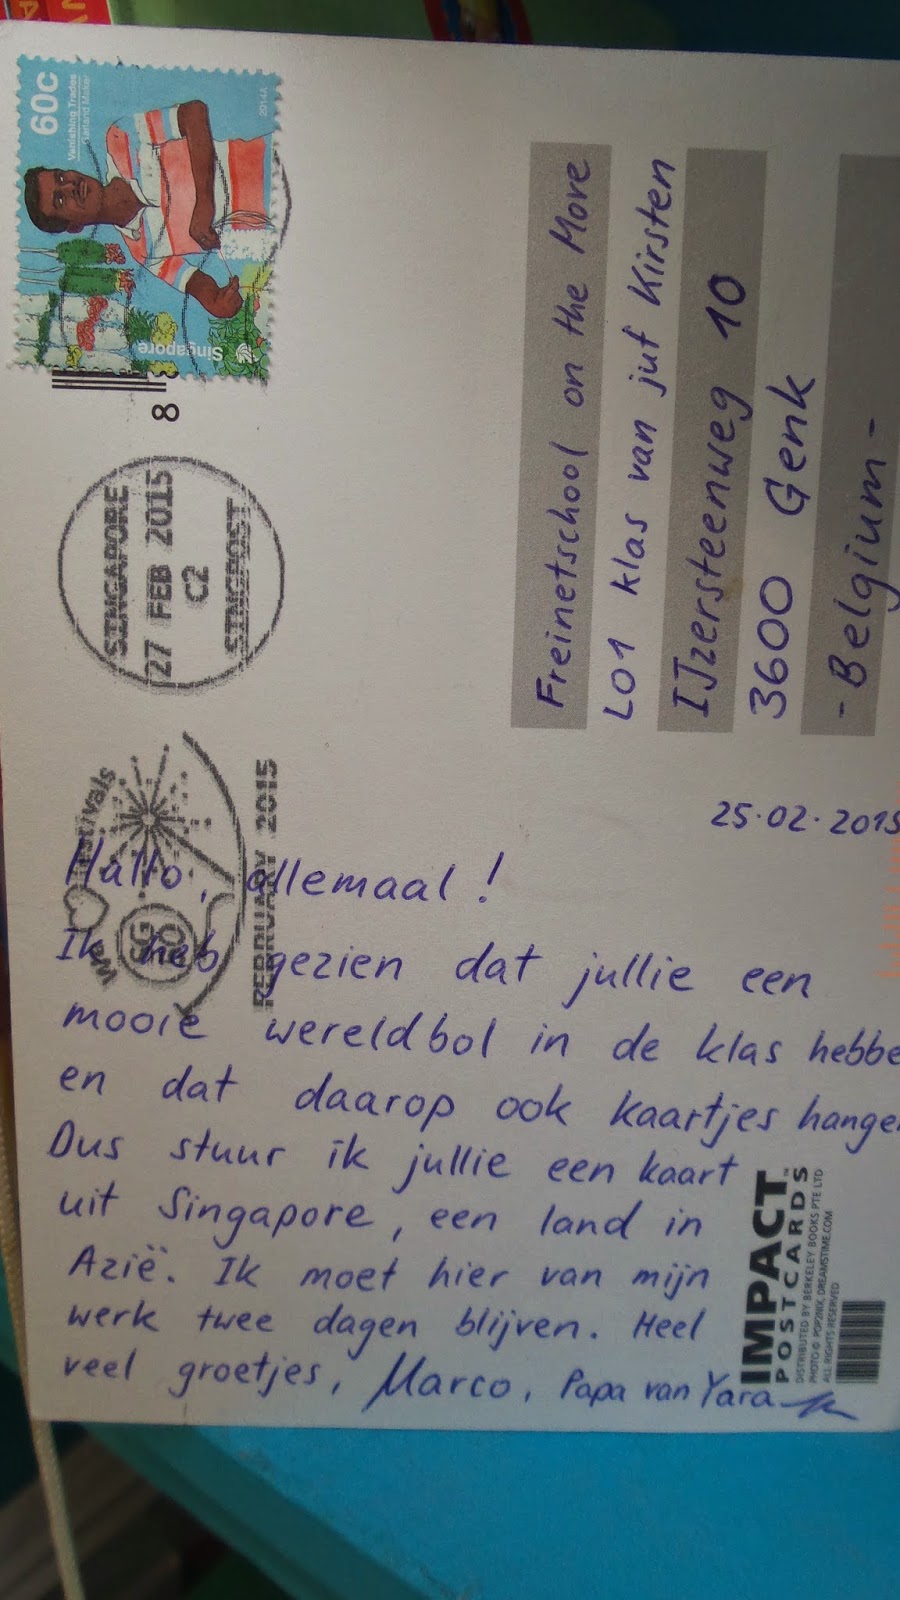 60c
Vanishing Trades
Garland Maker
2014A
Singapore
8
SINGAPORE
27 FEB 2015
C2
SINGPOST
We Festivals
SG
50
FEBRUARY 2015
Freinetschool on the Move
L01 klas van juf Kirsten
IJzersteenweg 10
3600 Genk
- Belgium -
25.02.2015
Hallo, allemaal!
Ik heb gezien dat jullie een
mooie wereldbol in de klas hebbe
en dat daarop ook kaartjes hange
Dus stuur ik jullie een kaart
uit Singapore, een land in
Azië. Ik moet hier van mijn
werk twee dagen blijven. Heel
veel groetjes, Marco, Papa van Yara
IMPACT™
POSTCARDS
DISTRIBUTED BY BERKELEY BOOKS PTE LTD
PHOTO © POP2NIX, DREAMSTIME.COM
ALL RIGHTS RESERVED